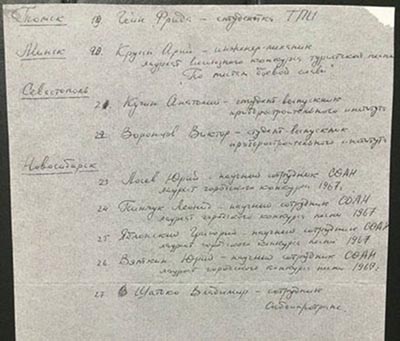 Томск 19 Гейн Фрида - студентка ТПИ
Минск 20. Крупп Арик - инженер-механик
лауреат всесоюзного конкурса туристской песни
"По местам боевой славы"
Севастополь
21. Кузин Анатолий - студент выпускник
приборостроительного института
22 Воронцов Виктор - студент выпускник
приборостроительного института
Новосибирск
23 Лосев Юрий - научный сотрудник СОАН
лауреат городского конкурса 1967.
24 Пинчук Леонид - научный сотрудник СОАН
лауреат городского конкурса песни 1967
25 Яблонский Григорий - научный сотрудник СОАН
лауреат городского конкурса песни 1967
26 Вяткин Юрий - научный сотрудник СОАН
лауреат городского конкурса песни 1967.
27 Владимир - сотрудник
Сибгипротранс.